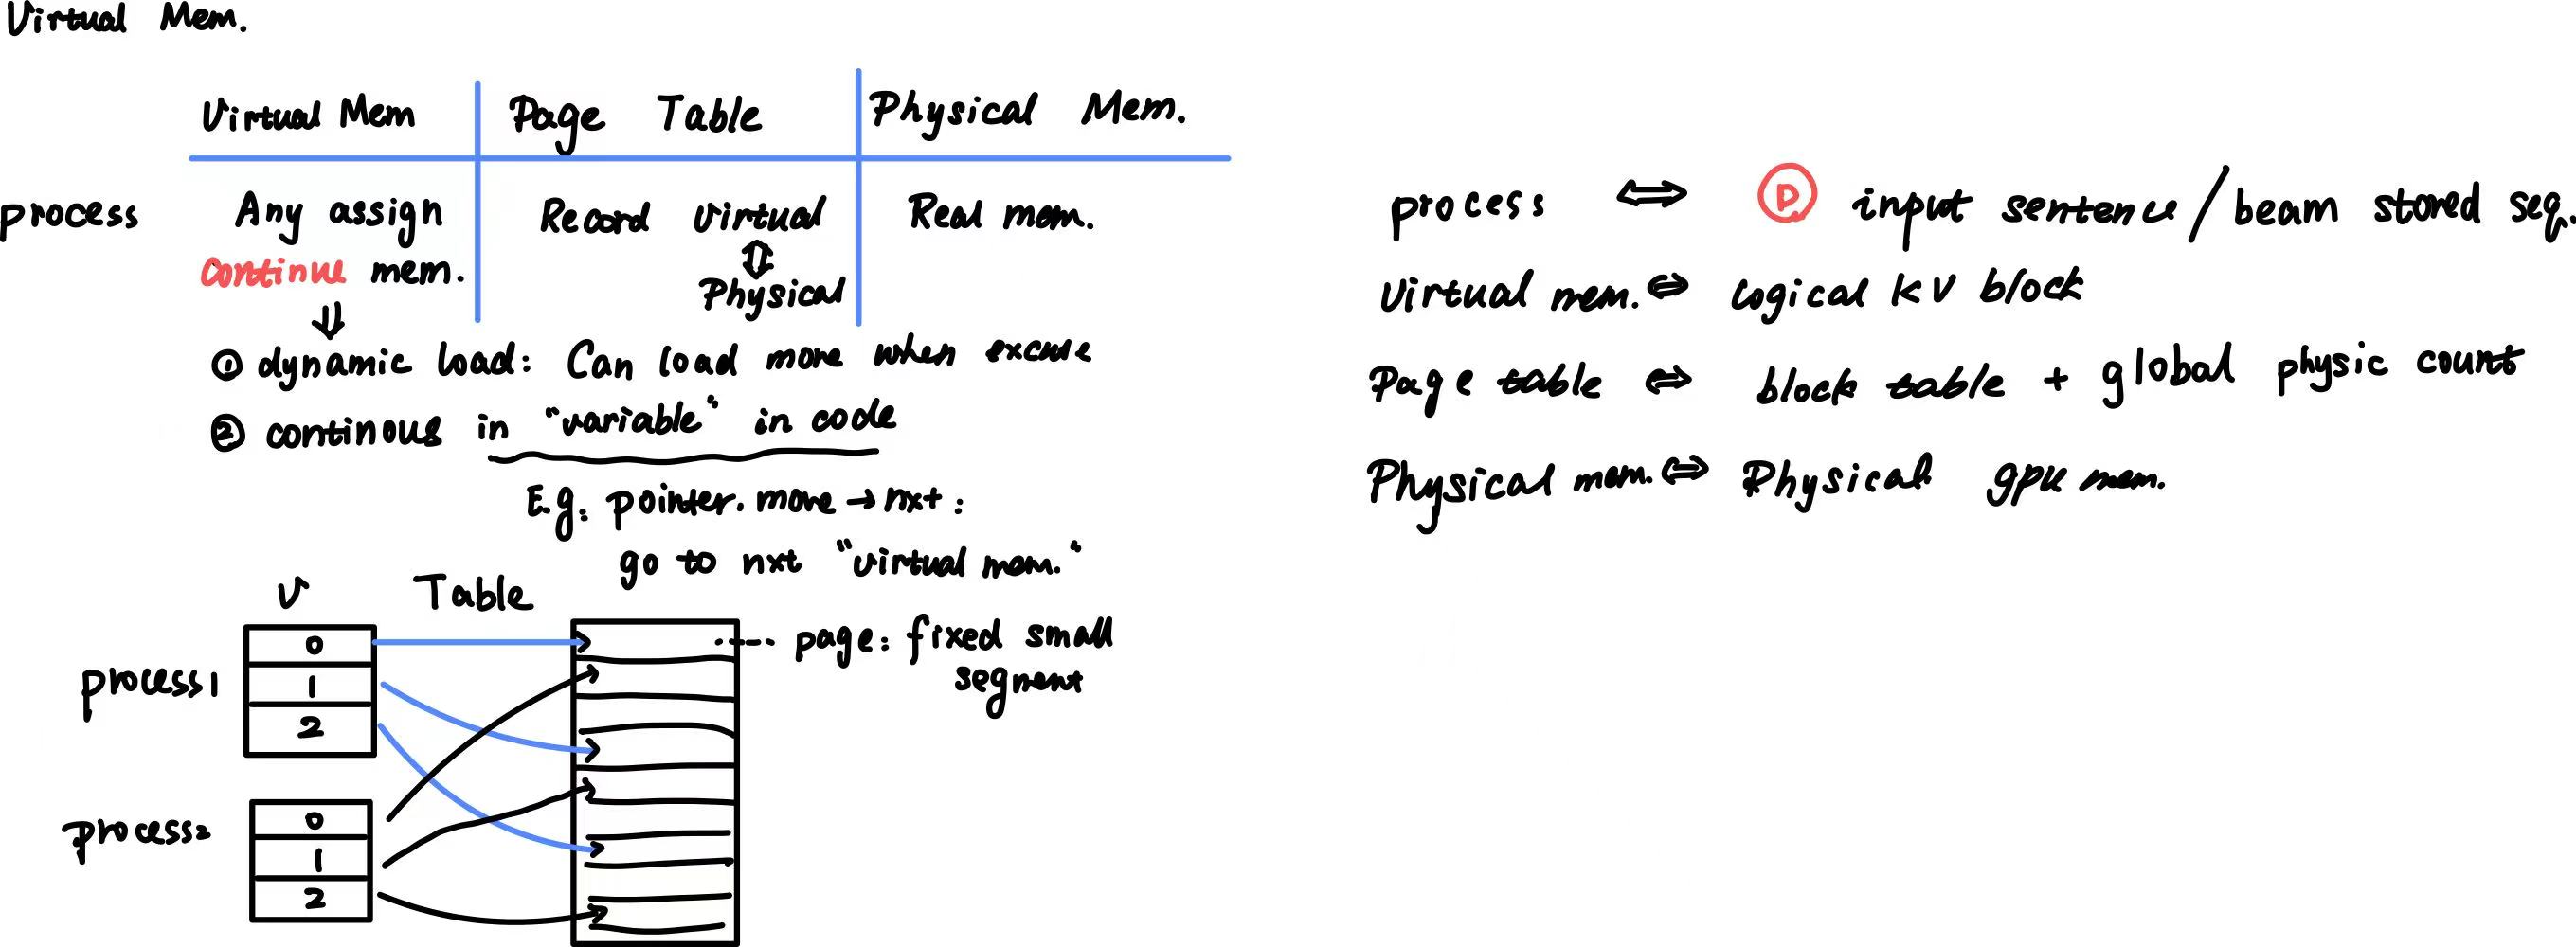 Virtual Mem.
Virtual Mem Page Table Physical Mem.
process Any assign Record virtual Real mem.
continue mem. ⇕
Physical
⇓
① dynamic load: Can load more when excute
② continous in "variable" in code
E.g. pointer.move → nxt:
go to nxt "virtual mem."
V Table
process1
0
1
2
page: fixed small
segment
process2
0
1
2
process ⇔ Ⓟ input sentence / beam stored seq.
Virtual mem. ⇔ logical KV block
Page table ⇔ block table + global physic count
Physical mem. ⇔ Physical gpu mem.